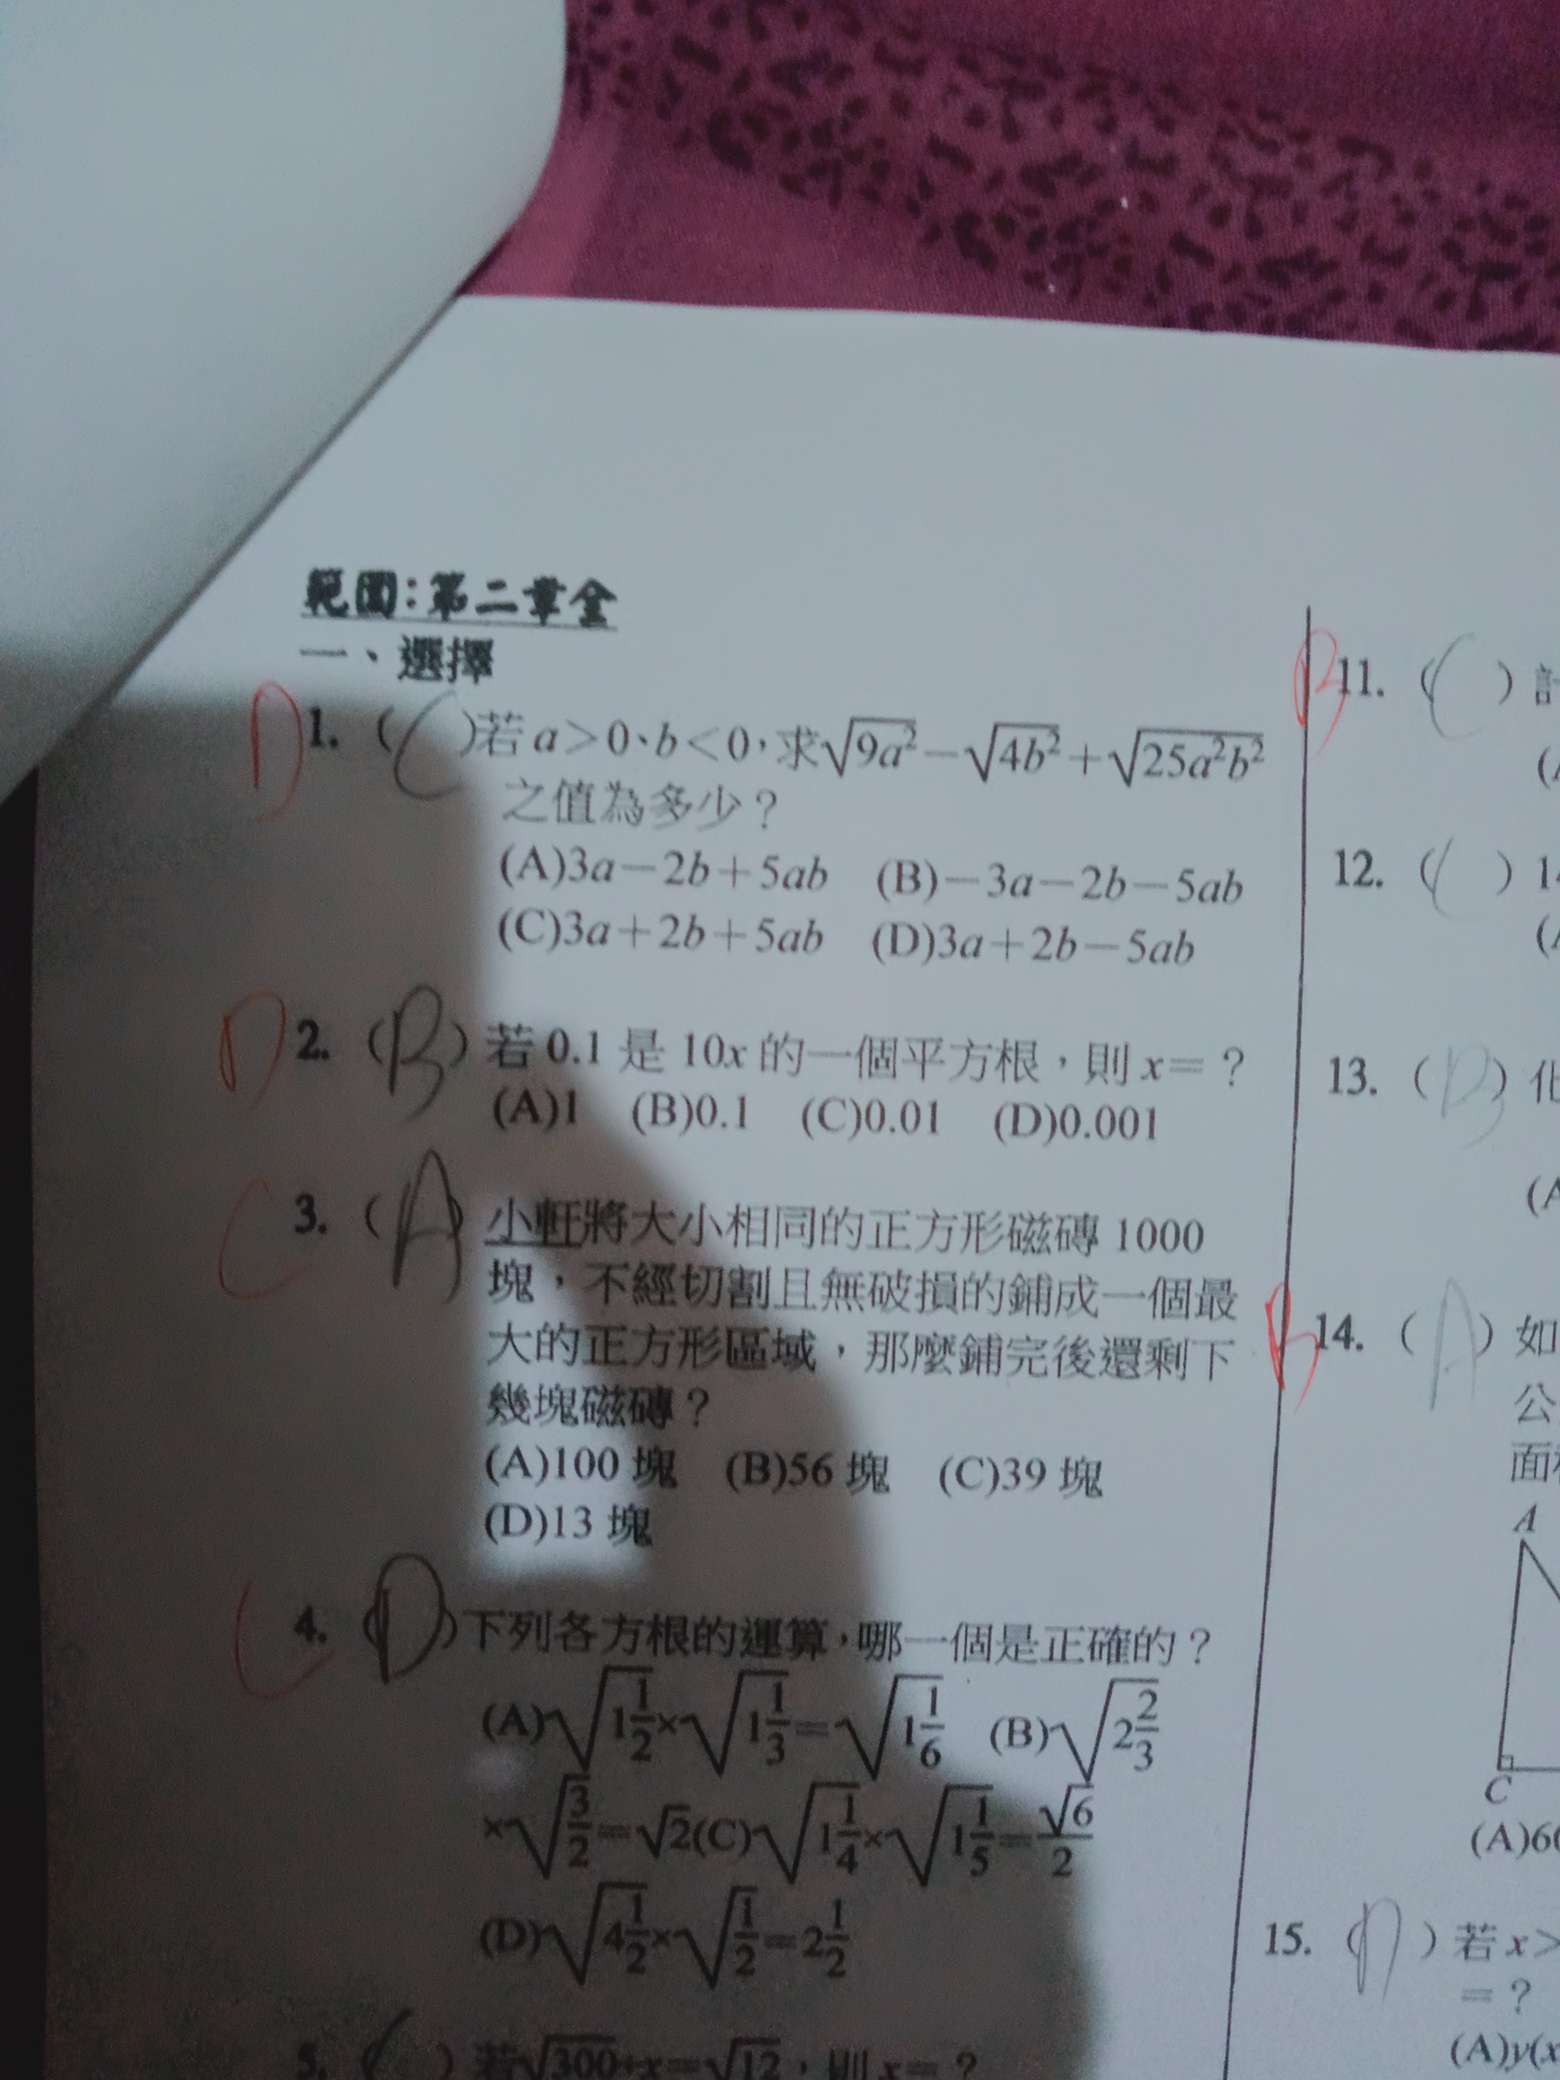 範圍：第二章全
一、選擇
D 1. (C)若 a＞0、b＜0，求√9a²－√4b²＋√25a²b²
之值為多少？
(A)3a－2b＋5ab (B)－3a－2b－5ab
(C)3a＋2b＋5ab (D)3a＋2b－5ab
D 2. (B)若 0.1 是 10x 的一個平方根，則 x＝？
(A)1 (B)0.1 (C)0.01 (D)0.001
C 3. (A)小軒將大小相同的正方形磁磚 1000
塊，不經切割且無破損的鋪成一個最
大的正方形區域，那麼鋪完後還剩下
幾塊磁磚？
(A)100 塊 (B)56 塊 (C)39 塊
(D)13 塊
C 4. (D)下列各方根的運算，哪一個是正確的？
(A)√1 1/2×√1 1/3＝√1 1/6 (B)√2 2/3
×√3/2＝√2(C)√1 1/4×√1 1/5＝√6/2
(D)√4 1/2×√1/2＝2 1/2
5. ( )若√300÷x＝√12，則 x＝？
B 11. (C)計
12. (C)
13. (B)化
(A
B 14. (A)如
公
面
A
C
(A)6
15. (D)若 x＞
＝？
(A)y(x